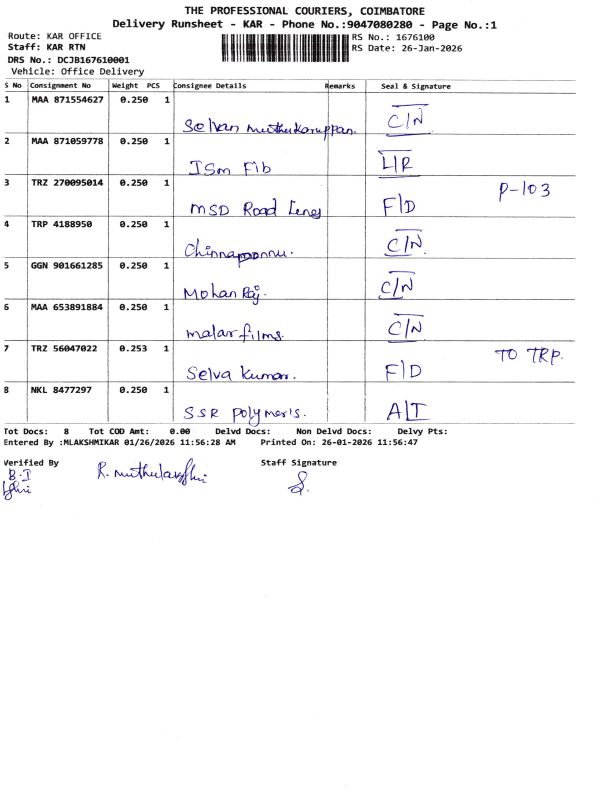 THE PROFESSIONAL COURIERS, COIMBATORE
Delivery Runsheet - KAR - Phone No.:9047080280 - Page No.:1
Route: KAR OFFICE
RS No.: 1676100
Staff: KAR RTN
RS Date: 26-Jan-2026
DRS No.: DCJB167610001
Vehicle: Office Delivery
S No Consignment No Weight PCS Consignee Details Remarks Seal & Signature
1 MAA 871554627 0.250 1
Selvan muthukaruppan. C/N
2 MAA 871059778 0.250 1
ISm Fib L/R
3 TRZ 270095014 0.250 1 P-103
MSD Road Lines F/D
4 TRP 4188950 0.250 1
Chinnaponnu. C/N.
5 GGN 901661285 0.250 1
Mohan Raj. C/N
6 MAA 653891884 0.250 1
malar films. C/N
7 TRZ 56047022 0.253 1 TO TRP.
Selva kumar. F/D
8 NKL 8477297 0.250 1
SSR polymers. A/T
Tot Docs: 8 Tot COD Amt: 0.00 Delvd Docs: Non Delvd Docs: Delvy Pts:
Entered By :MLAKSHMIKAR 01/26/2026 11:56:28 AM Printed On: 26-01-2026 11:56:47
Verified By Staff Signature
R. muthulakshmi